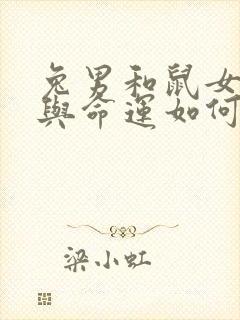 兔男和鼠女
與命運如何
梁小虹